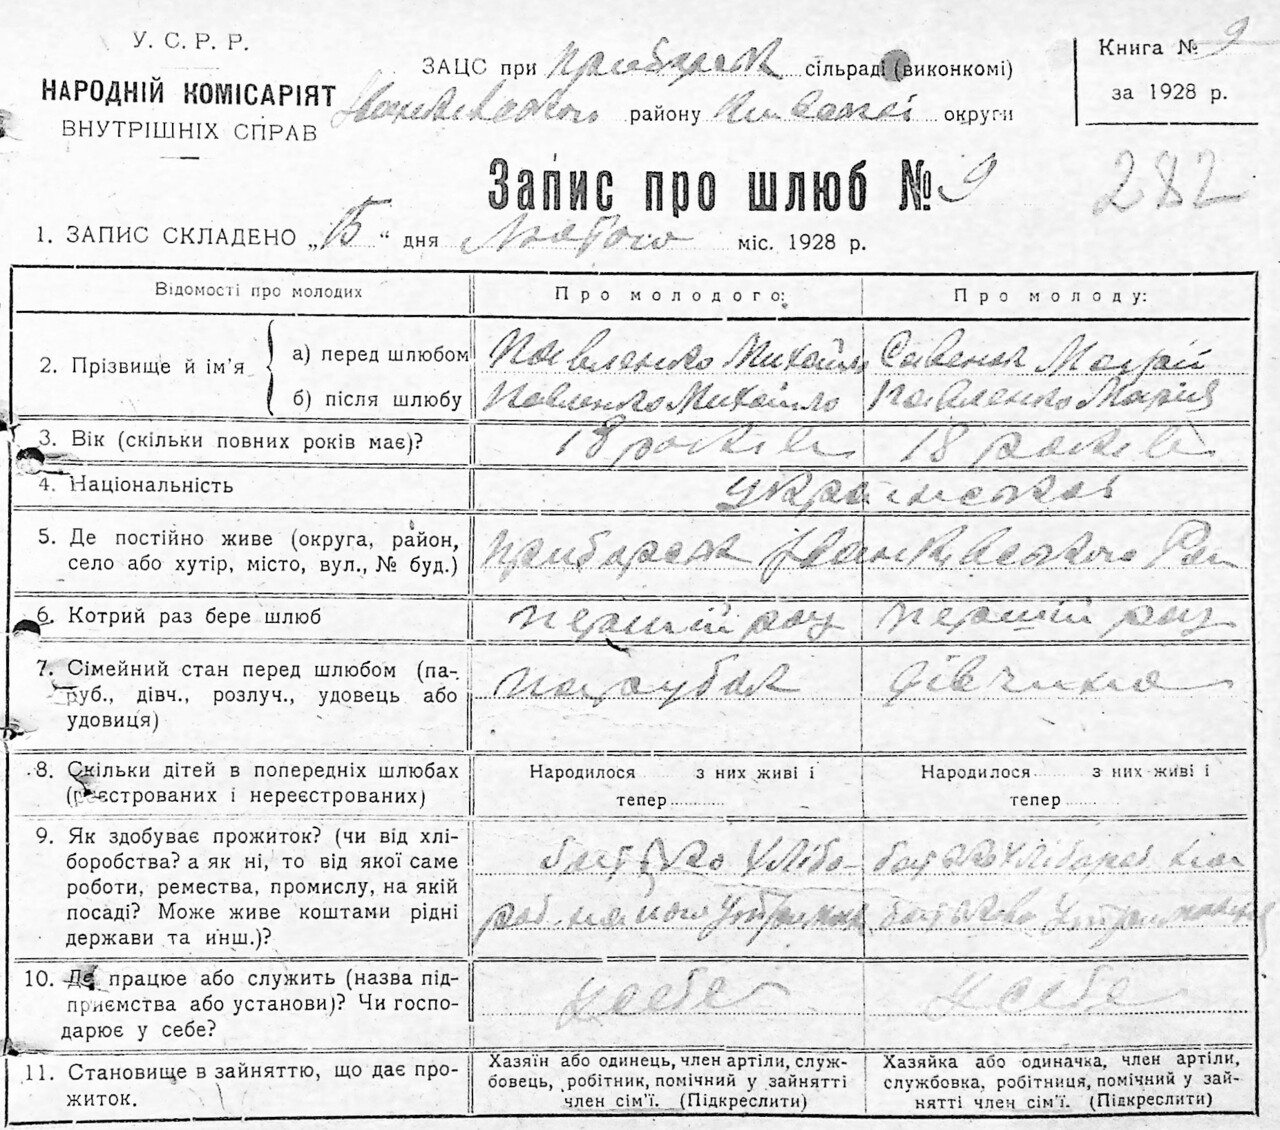 У. С. Р. Р.
НАРОДНІЙ КОМІСАРІЯТ
ВНУТРІШНІХ СПРАВ
ЗАЦС при Прибарськ сільраді (виконкомі)
Іванківського району Київської округи
Книга № 9
за 1928 р.
Запис про шлюб № 9
282
1. ЗАПИС СКЛАДЕНО „15“ дня Лютого міс. 1928 р.
Відомості про молодих
Про молодого:
Про молоду:
2. Прізвище й ім'я
а) перед шлюбом
Павленко Михайло
Савенок Марій
б) після шлюбу
Павленко Михайло
Павленко Марія
3. Вік (скільки повних років має)?
18 років
18 років
4. Національність
Українська
5. Де постійно живе (округа, район,
село або хутір, місто, вул., № буд.)
Прибарськ Іванківського Рай
6. Котрий раз бере шлюб
першій раз
першій раз
7. Сімейний стан перед шлюбом (па-
руб., дівч., розлуч., удовець або
удовиця)
парубок
дівчина
8. Скільки дітей в попередніх шлюбах
(реєстрованих і нереєстрованих)
Народилося з них живі і
тепер
Народилося з них живі і
тепер
9. Як здобуває прожиток? (чи від хлі-
боробства? а як ні, то від якої саме
роботи, ремества, промислу, на якій
посаді? Може живе коштами рідні
держави та инш.)?
батько хлібо-
роб на його
батько хлібороб на
10. Де працює або служить (назва під-
приємства або установи)? Чи госпо-
дарює у себе?
У себе
У себе
11. Становище в зайняттю, що дає про-
житок.
Хазяїн або одинець, член артіли, служ-
бовець, робітник, помічний у зайнятті
член сім'ї. (Підкреслити)
Хазяйка або одиначка, член артіли,
службовка, робітниця, помічний у зай-
нятті член сім'ї. (Підкреслити)